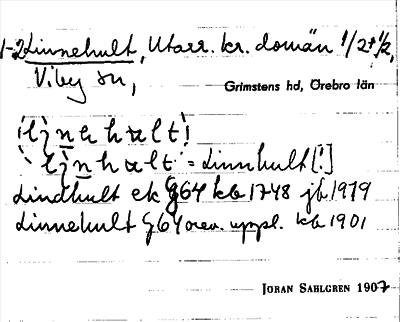 1-2 Linnehult, Utarr. kr. domän 1/2+1/2,
Viby sn,
Grimstens hd, Örebro län
lịnhhælt
lịnhhælt = Linnhult [!]
Lindhult ek G64 kb 1748 jb 1979
Linnehult G64 orev. uppl. kb 1901
JORAN SAHLGREN 1907